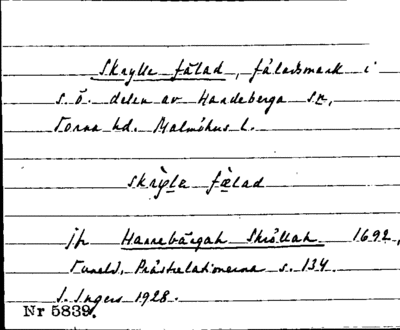 Skrylle fälad, fäladsmark i
s.ö. delen av Hardeberga sn,
Torna hd. Malmöhus l.
skrỳle fælad
jfr Harrebärgah Skröllah 1692,
Tuneld, Prästrelationerna s. 134.
I. Ingers 1928.
Nr 5839.